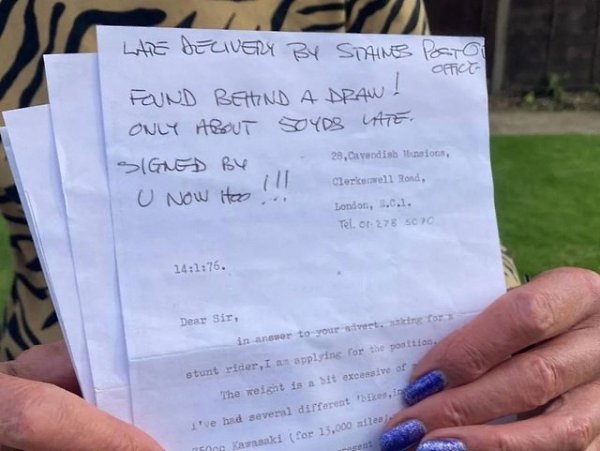 LATE DELIVERY BY STAINES POST O
OFFICE
FOUND BEHIND A DRAW!
ONLY ABOUT 50YDS LATE.
SIGNED BY
U NOW HOO !!!
28,Cavendish Mansions,
Clerkenwell Road,
London, E.C.1.
Tel. 01-278 5070
14:1:76.
Dear Sir,
in answer to your advert. asking for a
stunt rider,I am applying for the position.
The weight is a bit excessive of
i've had several different 'bikes,
750cc Kawasaki (for 15,000 miles)